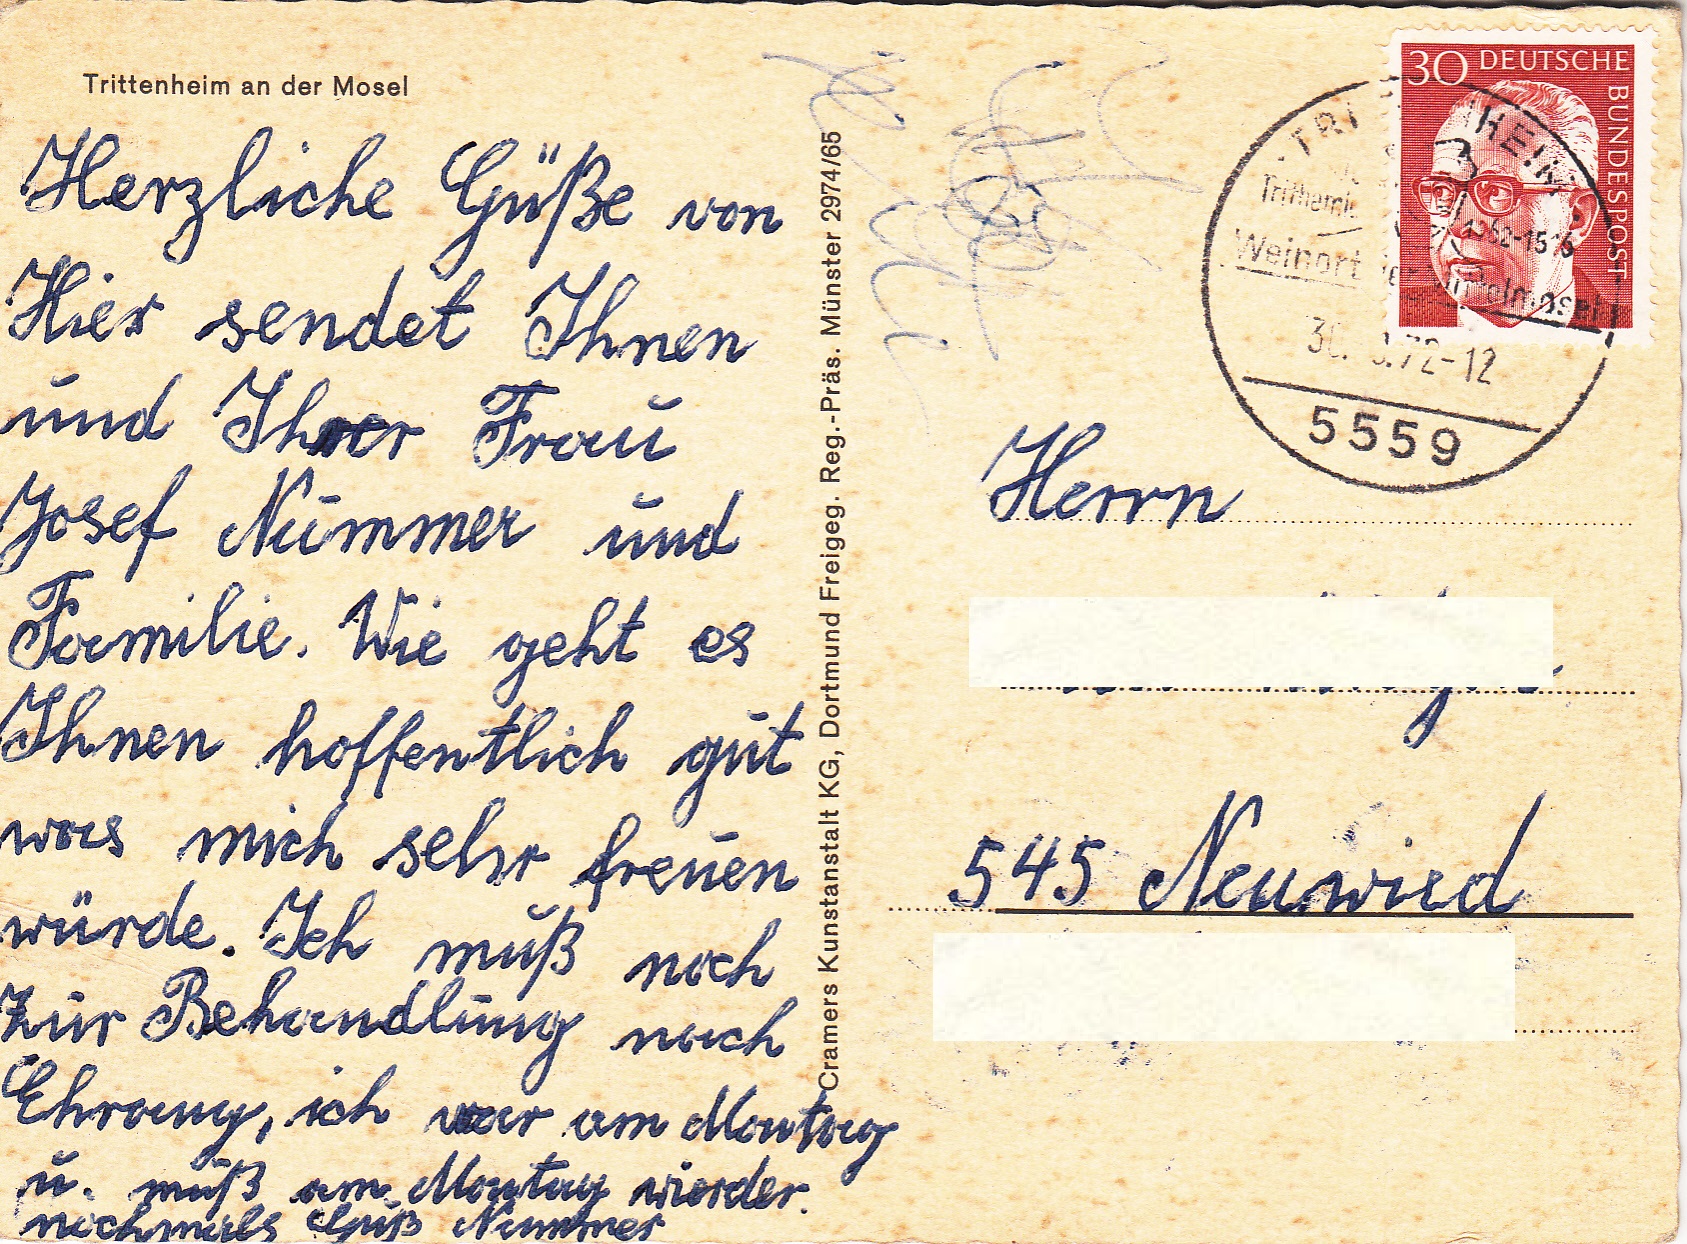 Trittenheim an der Mosel
Herzliche Güße von
Hier sendet Ihnen
und Ihrer Frau
Josef Nummer und
Familie. Wie geht es
Ihnen hoffentlich gut
was mich sehr freuen
würde. Ich muß noch
zur Behandlung nach
Ehrang, ich war am Montag
u. muß am Montag wierder.
nochmals Gruß Nummer
Cramers Kunstanstalt KG, Dortmund Freigeg. Reg.-Präs. Münster 2974/65
30 DEUTSCHE
BUNDESPOST
Weinort
.72-12
5559
Herrn
545 Neuwied